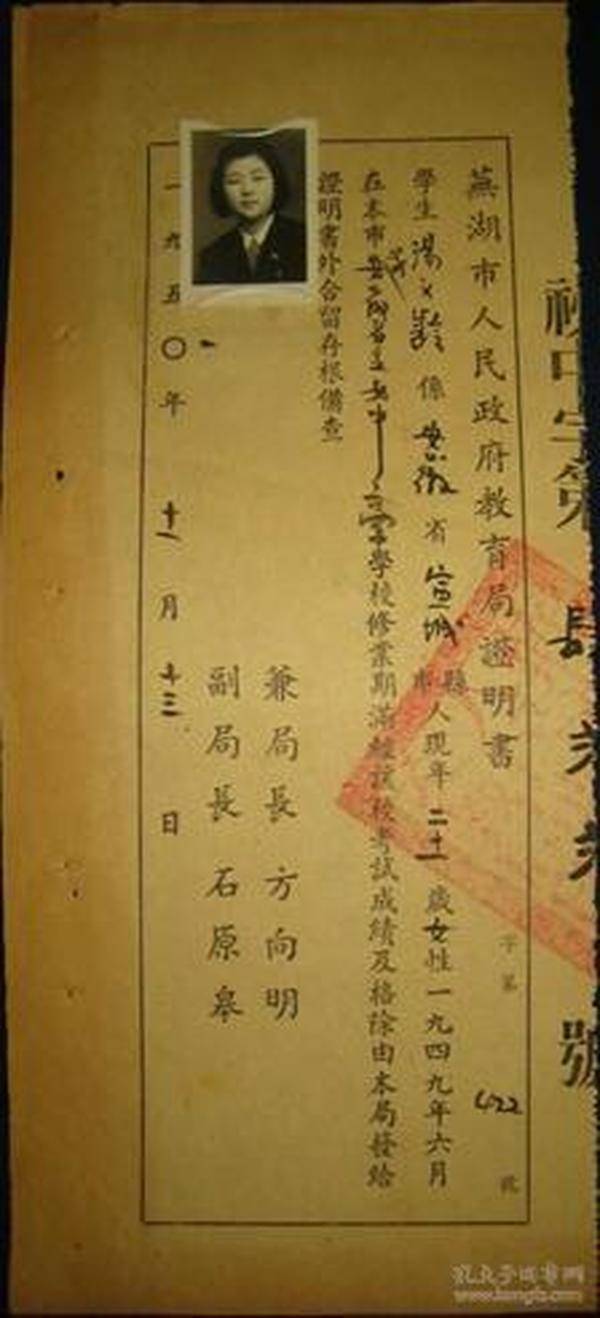 號
蕪湖市人民政府教育局證明書
字第 422 號
學生湯文齡係安徽省宣城縣市人現年二十一歲女性一九四九年六月
在本市學校修業期滿經該校考試成績及格除由本局發給
證明書外合留存根備查
兼局長 方向明
副局長 石原皋
一九五〇年十一月十三日
孔夫子旧书网
www.kongfz.com